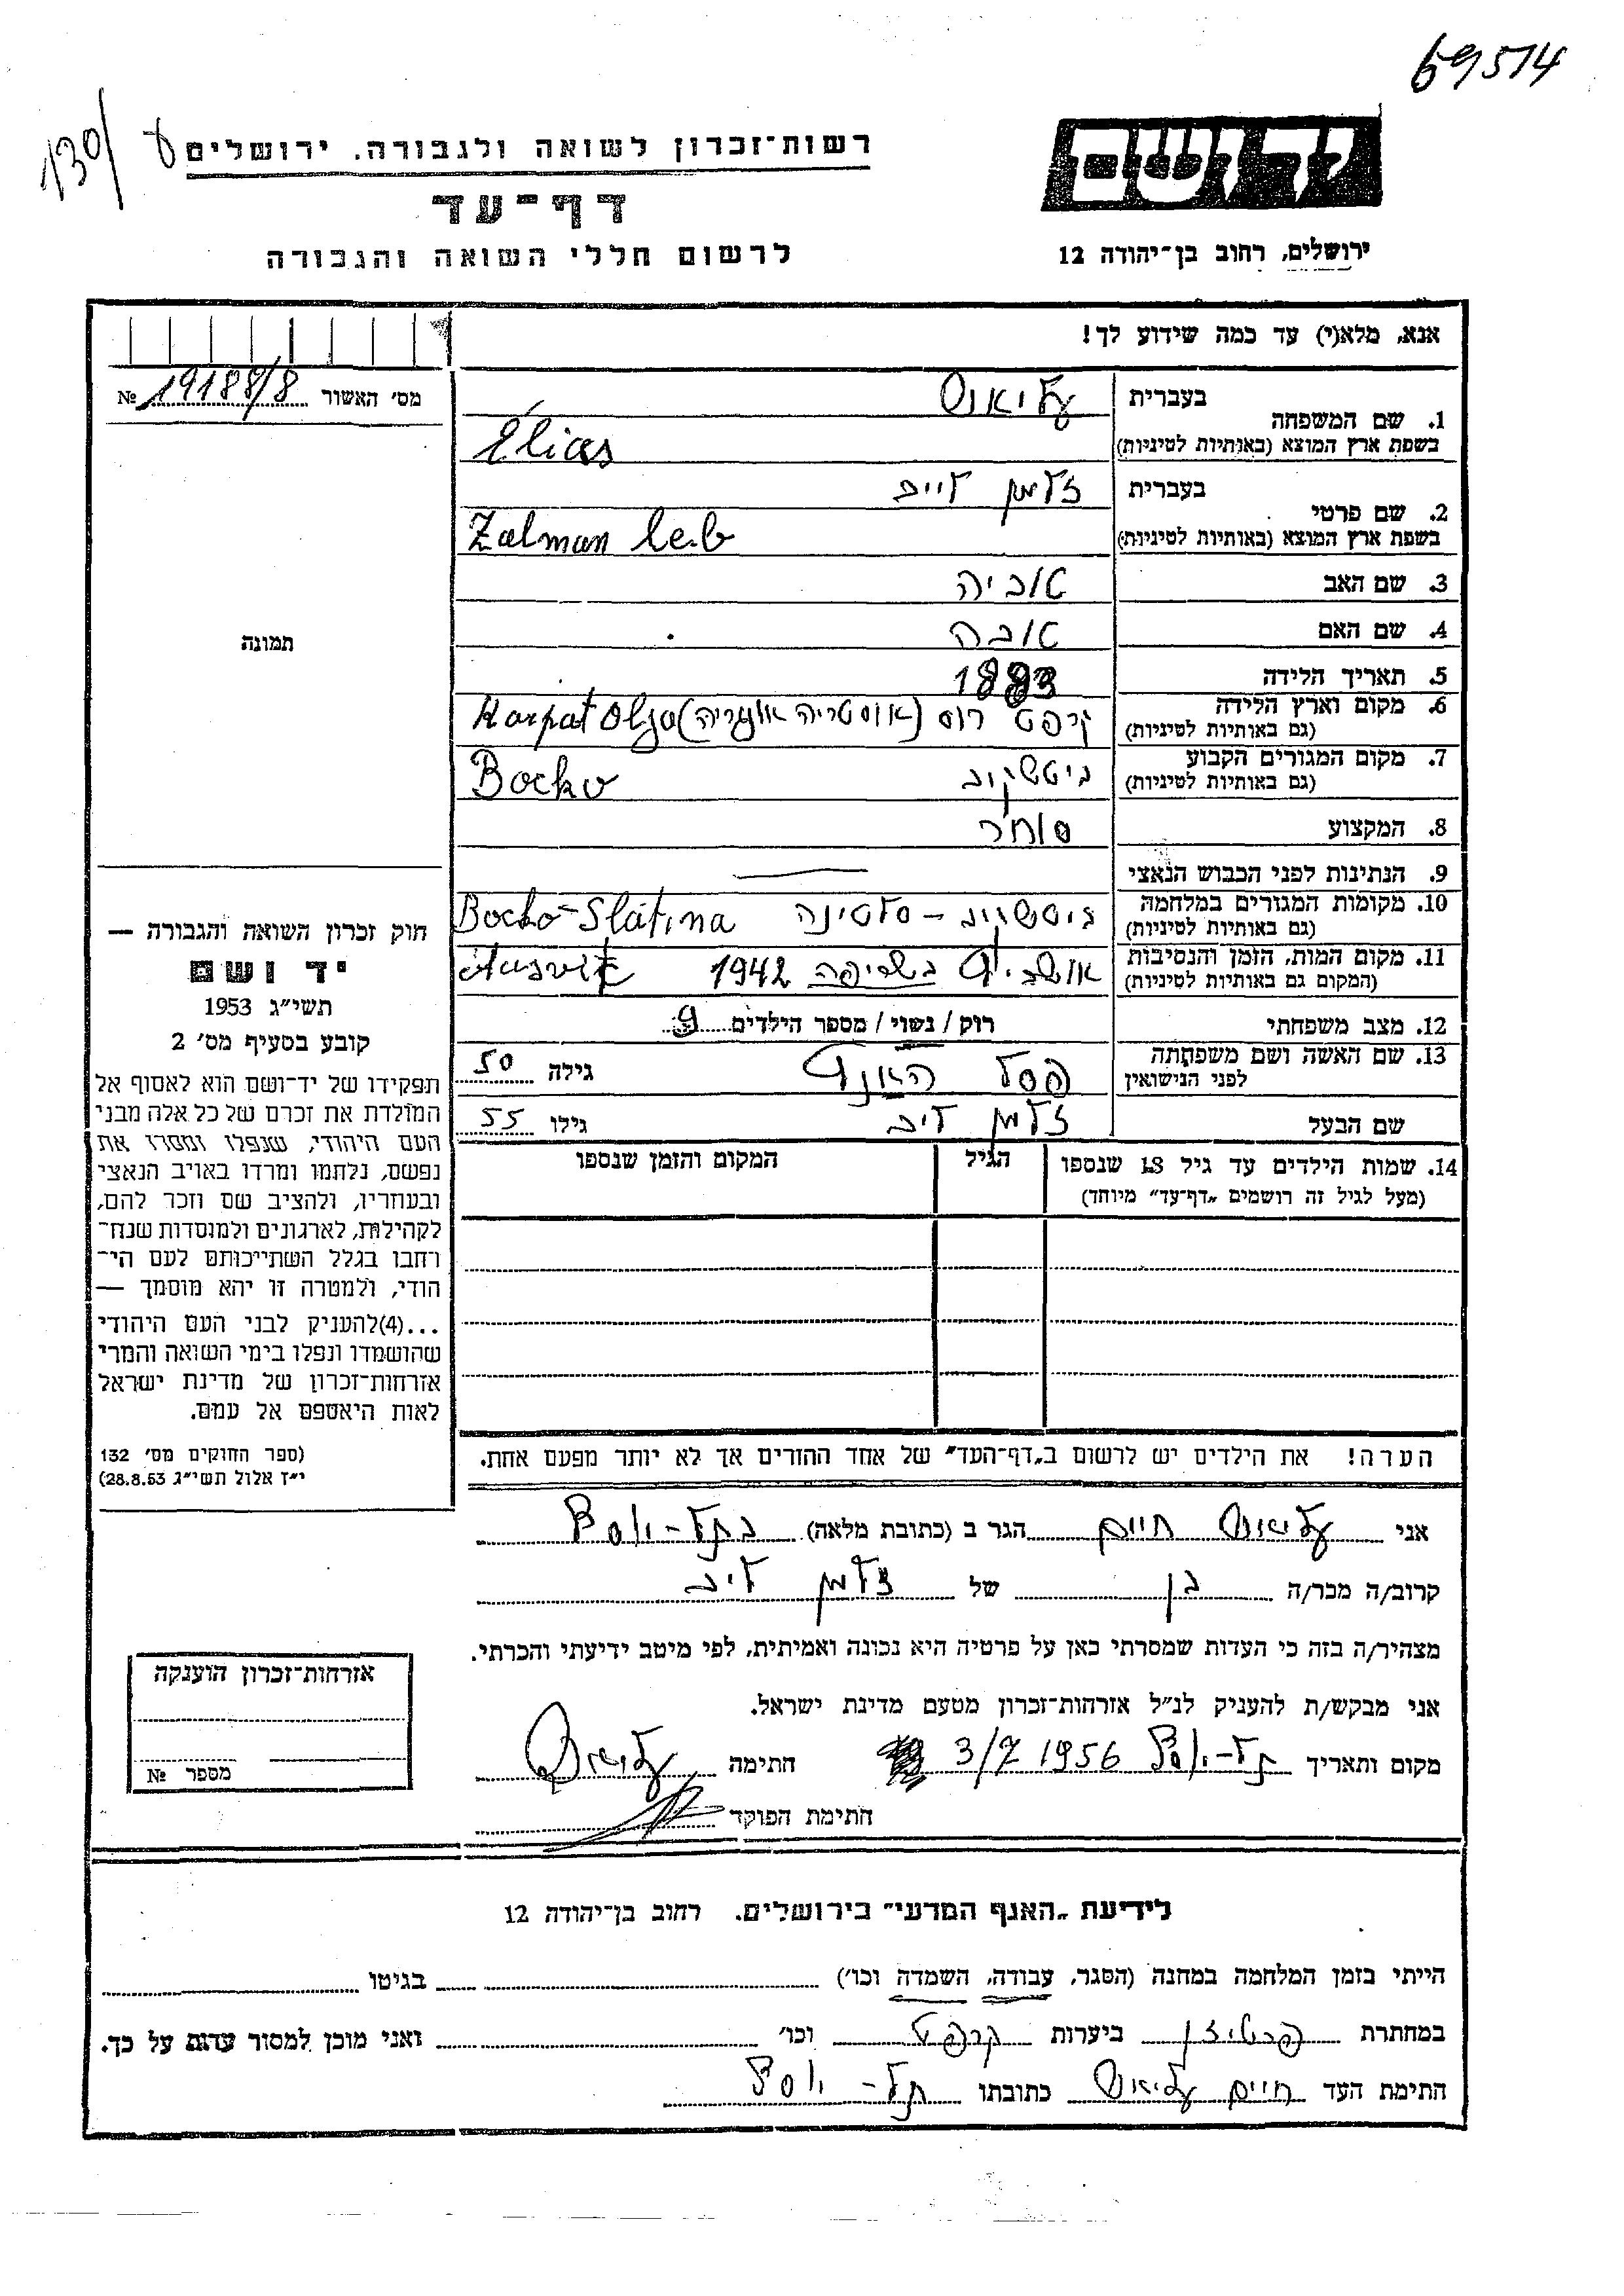 69514
130/ ע
רשות־זכרון לשואה ולגבורה. ירושלים
דף־עד
לרשום חללי השואה והגבורה
יד ושם
ירושלים, רחוב בן־יהודה 12
אנא, מלא(י) עד כמה שידוע לך!
מס׳ האשור 19188/8 №
1. שם המשפחה
בעברית עליאס
בשפת ארץ המוצא (באותיות לטיניות) Élias
2. שם פרטי
בעברית זלמן לייב
בשפת ארץ המוצא (באותיות לטיניות) Zalman Leib
3. שם האב טוביה
4. שם האם טובה
5. תאריך הלידה 1883
6. מקום וארץ הלידה קרפט רוס (אוסטריה אונגריה) Karpat
(גם באותיות לטיניות)
7. מקום המגורים הקבוע ביטשקוב Bocko
(גם באותיות לטיניות)
8. המקצוע סוחר
9. הנתינות לפני הכבוש הנאצי —
10. מקומות המגורים במלחמה ביטשקוב – סלטינה Bocko-Slatina
(גם באותיות לטיניות)
11. מקום המות, הזמן והנסיבות אושביץ בשריפה 1942
(המקום גם באותיות לטיניות)
12. מצב משפחתי רוק / נשוי / מספר הילדים 9
13. שם האשה ושם משפחתה
לפני הנישואין פסל האניג גילה 50
שם הבעל זלמן ליב גילו 55
14. שמות הילדים עד גיל 18 שנספו הגיל המקום והזמן שנספו
(מעל לגיל זה רושמים „דף־עד״ מיוחד)
הערה! את הילדים יש לרשום ב„דף־העד״ של אחד ההורים אך לא יותר מפעם אחת.
תמונה
חוק זכרון השואה והגבורה —
יד ושם
תשי״ג 1953
קובע בסעיף מס׳ 2
תפקידו של יד־ושם הוא לאסוף אל
המולדת את זכרם של כל אלה מבני
העם היהודי, שנפלו ומסרו את
נפשם, נלחמו ומרדו באויב הנאצי
ובעוזריו, ולהציב שם וזכר להם,
לקהילות, לארגונים ולמוסדות שנח־
רבו בגלל השתייכותם לעם הי־
הודי, ולמטרה זו יהא מוסמך —
...(4)להעניק לבני העם היהודי
שהושמדו ונפלו בימי השואה והמרי
אזרחות־זכרון של מדינת ישראל
לאות היאספם אל עמם.
(ספר החוקים מס׳ 132
י״ז אלול תשי״ג 28.8.53)
אני עליאס חיים הגר ב (כתובת מלאה) בתל-יוסף
קרוב/ה מכר/ה בן של זלמן ליב
מצהיר/ה בזה כי העדות שמסרתי כאן על פרטיה היא נכונה ואמיתית, לפי מיטב ידיעתי והכרתי.
אני מבקש/ת להעניק לנ״ל אזרחות־זכרון מטעם מדינת ישראל.
מקום ותאריך תל-יוסף 3/7 1956 חתימה עליאס
חתימת הפוקד
אזרחות־זכרון הוענקה
מספר №
לידיעת „האגף המדעי״ בירושלים. רחוב בן־יהודה 12
הייתי בזמן המלחמה במחנה (הסגר, עבודה, השמדה וכו׳) בגיטו
במחתרת פרטיזן ביערות קרפט וכו׳ ואני מוכן למסור עדות על כך.
חתימת העד חיים עליאס כתובתו תל-יוסף